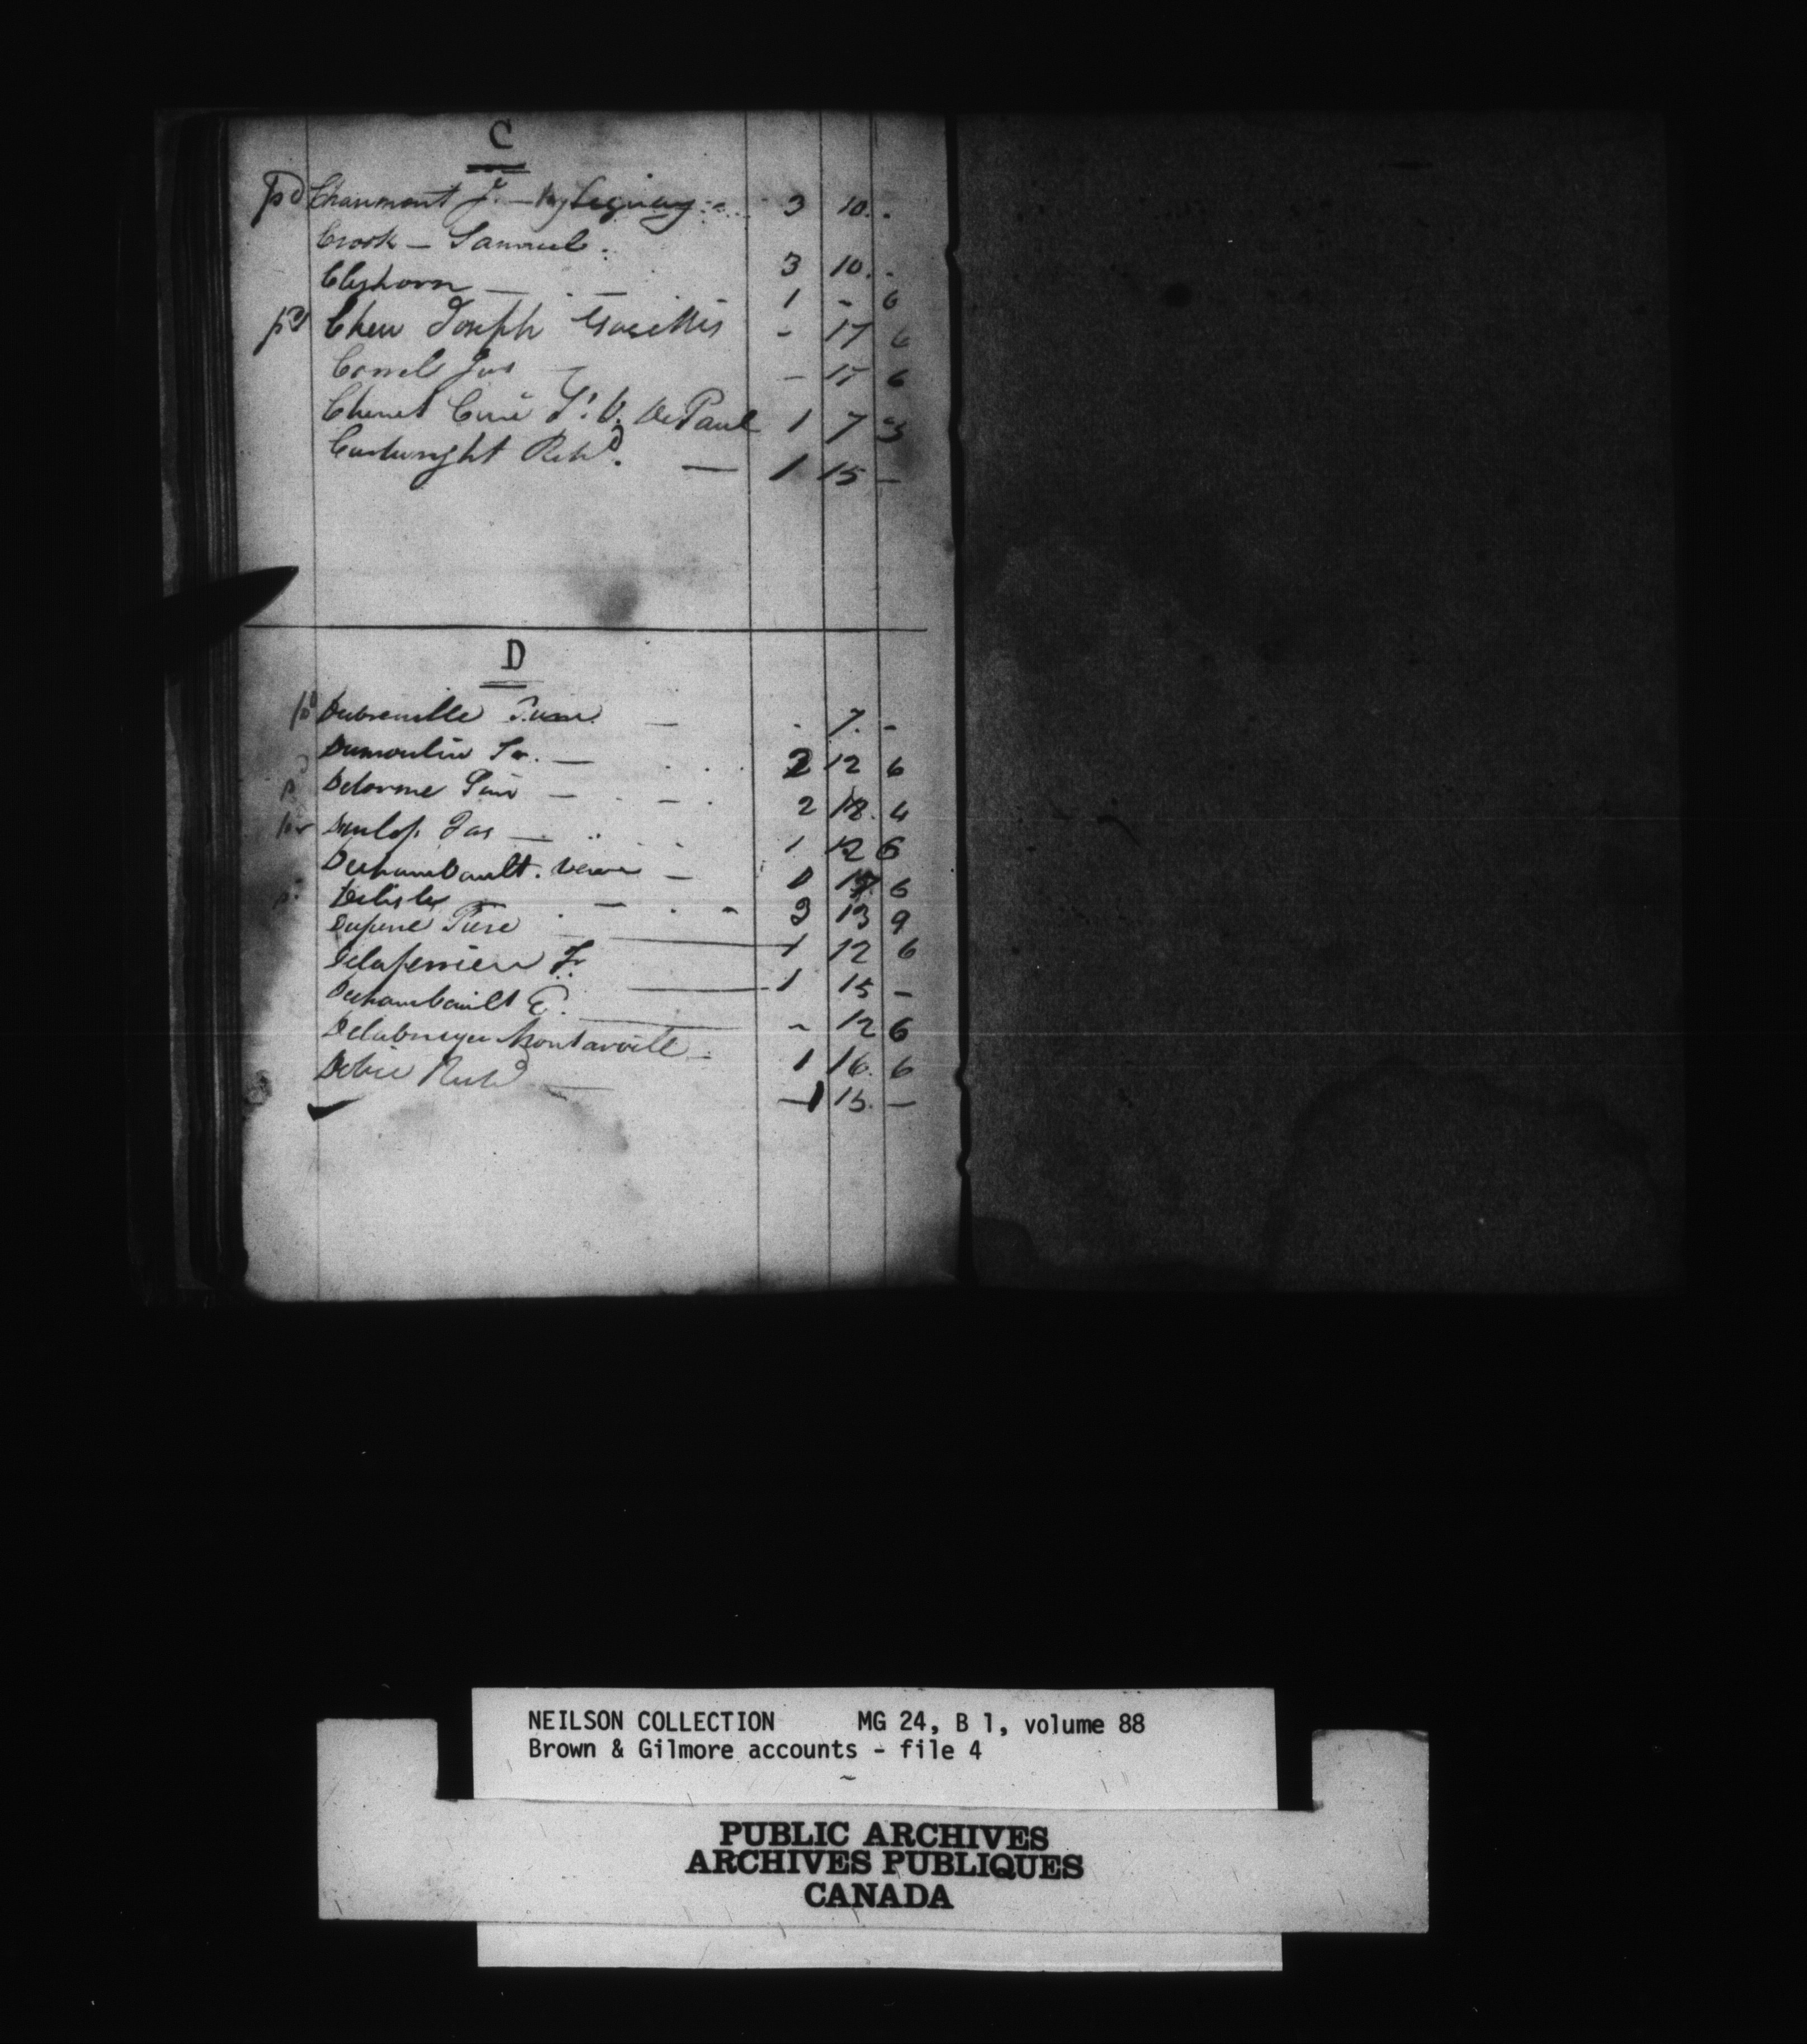 C
pd Chaumont J. — by 3 10 . -
Crook — Samuel . 3 10 . -
Clyhorn — . — 1 - 6
pd Chew Joseph Gazettes - 17 6
Jas — - 6
Chenet Curé St. V. De Paul 1 7 3
Cartwright Richd. — 1 15 —
D
pd Dubreuille — - 7 . -
Dumoulin — 2 12 6
Delorme — 2 18 . 4
Dunlop Jas — 1 12 6
Deschambault — 6
Delisle — 3 13 9
Dupene 1 12 6
Delaperriere Jr. 1 15 —
Deschambault E. - 12 6
Delabruyere Montarville - 1 16 . 6
Dobie Richd — 1 15 . —
NEILSON COLLECTION MG 24, B 1, volume 88
Brown & Gilmore accounts - file 4
PUBLIC ARCHIVES
ARCHIVES PUBLIQUES
CANADA